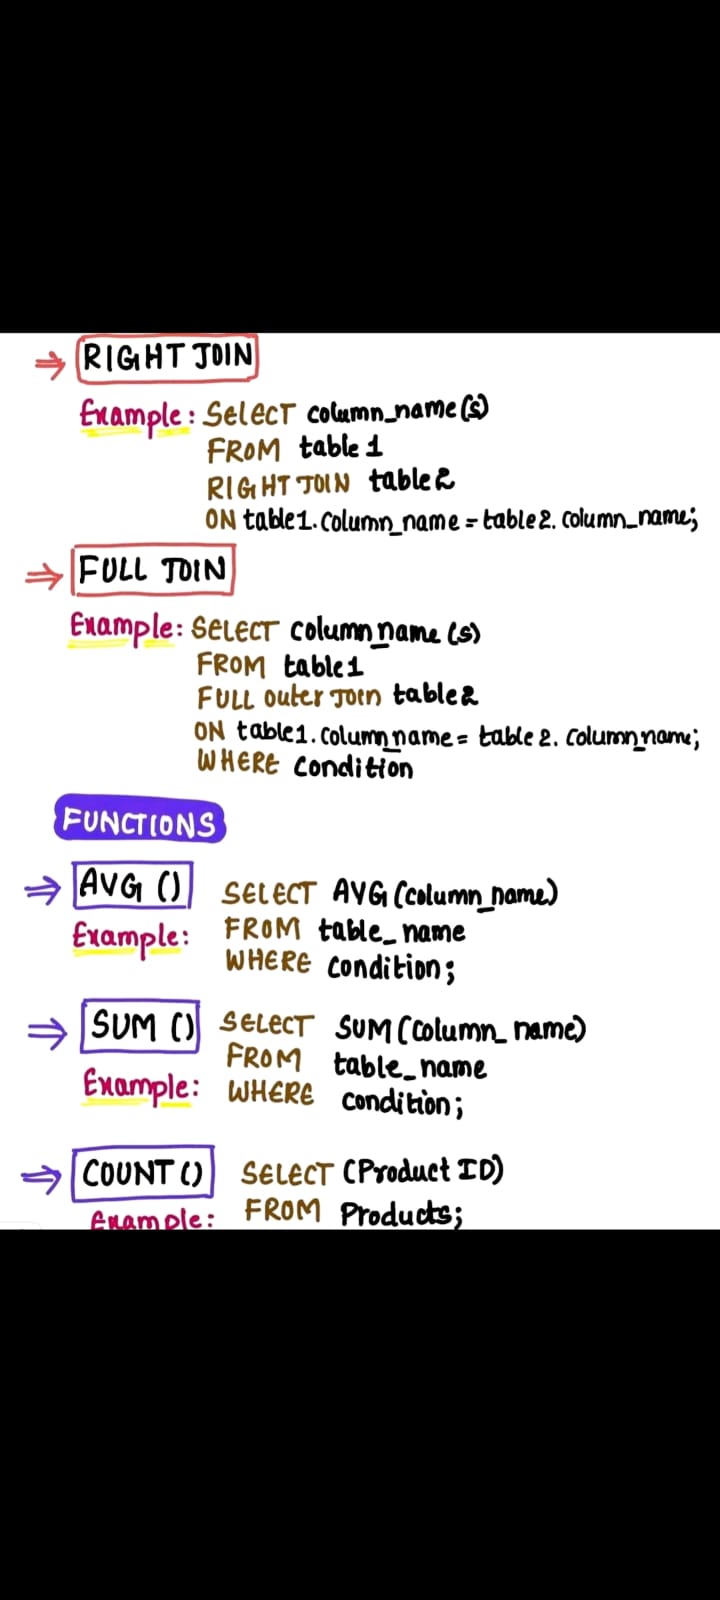 ⇒ RIGHT JOIN
Example: SELECT column_name(s)
FROM table 1
RIGHT JOIN table2
ON table1.column_name = table2.column_name;
⇒ FULL JOIN
Example: SELECT column_name (s)
FROM table1
FULL outer Join table2
ON table1.column_name = table2.column_name;
WHERE condition
FUNCTIONS
⇒ AVG () SELECT AVG (column_name)
Example: FROM table_name
WHERE condition;
⇒ SUM () SELECT SUM (column_name)
FROM table_name
Example: WHERE condition;
⇒ COUNT () SELECT (Product ID)
Example: FROM Products;